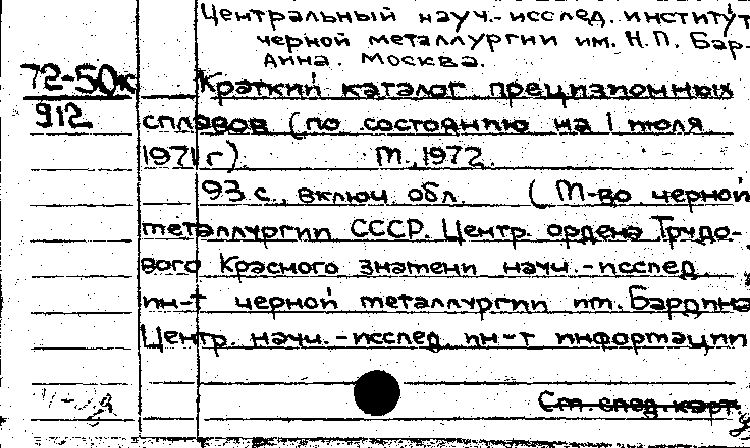 Центральный науч.-исслед. институт
черной металлургии им. Н.П. Бар-
дина. Москва.
72-50к
912
Краткий каталог прецизионных
сплавов (по состоянию на 1 июля
1971 г.)   М., 1972.
93 с., включ. обл. (М-во черной
металлургии СССР. Центр. ордена Трудо-
вого Красного знамени науч.-исслед.
ин-т черной металлургии им. Бардина
Центр. науч.-исслед. ин-т информации
См. след. карт.